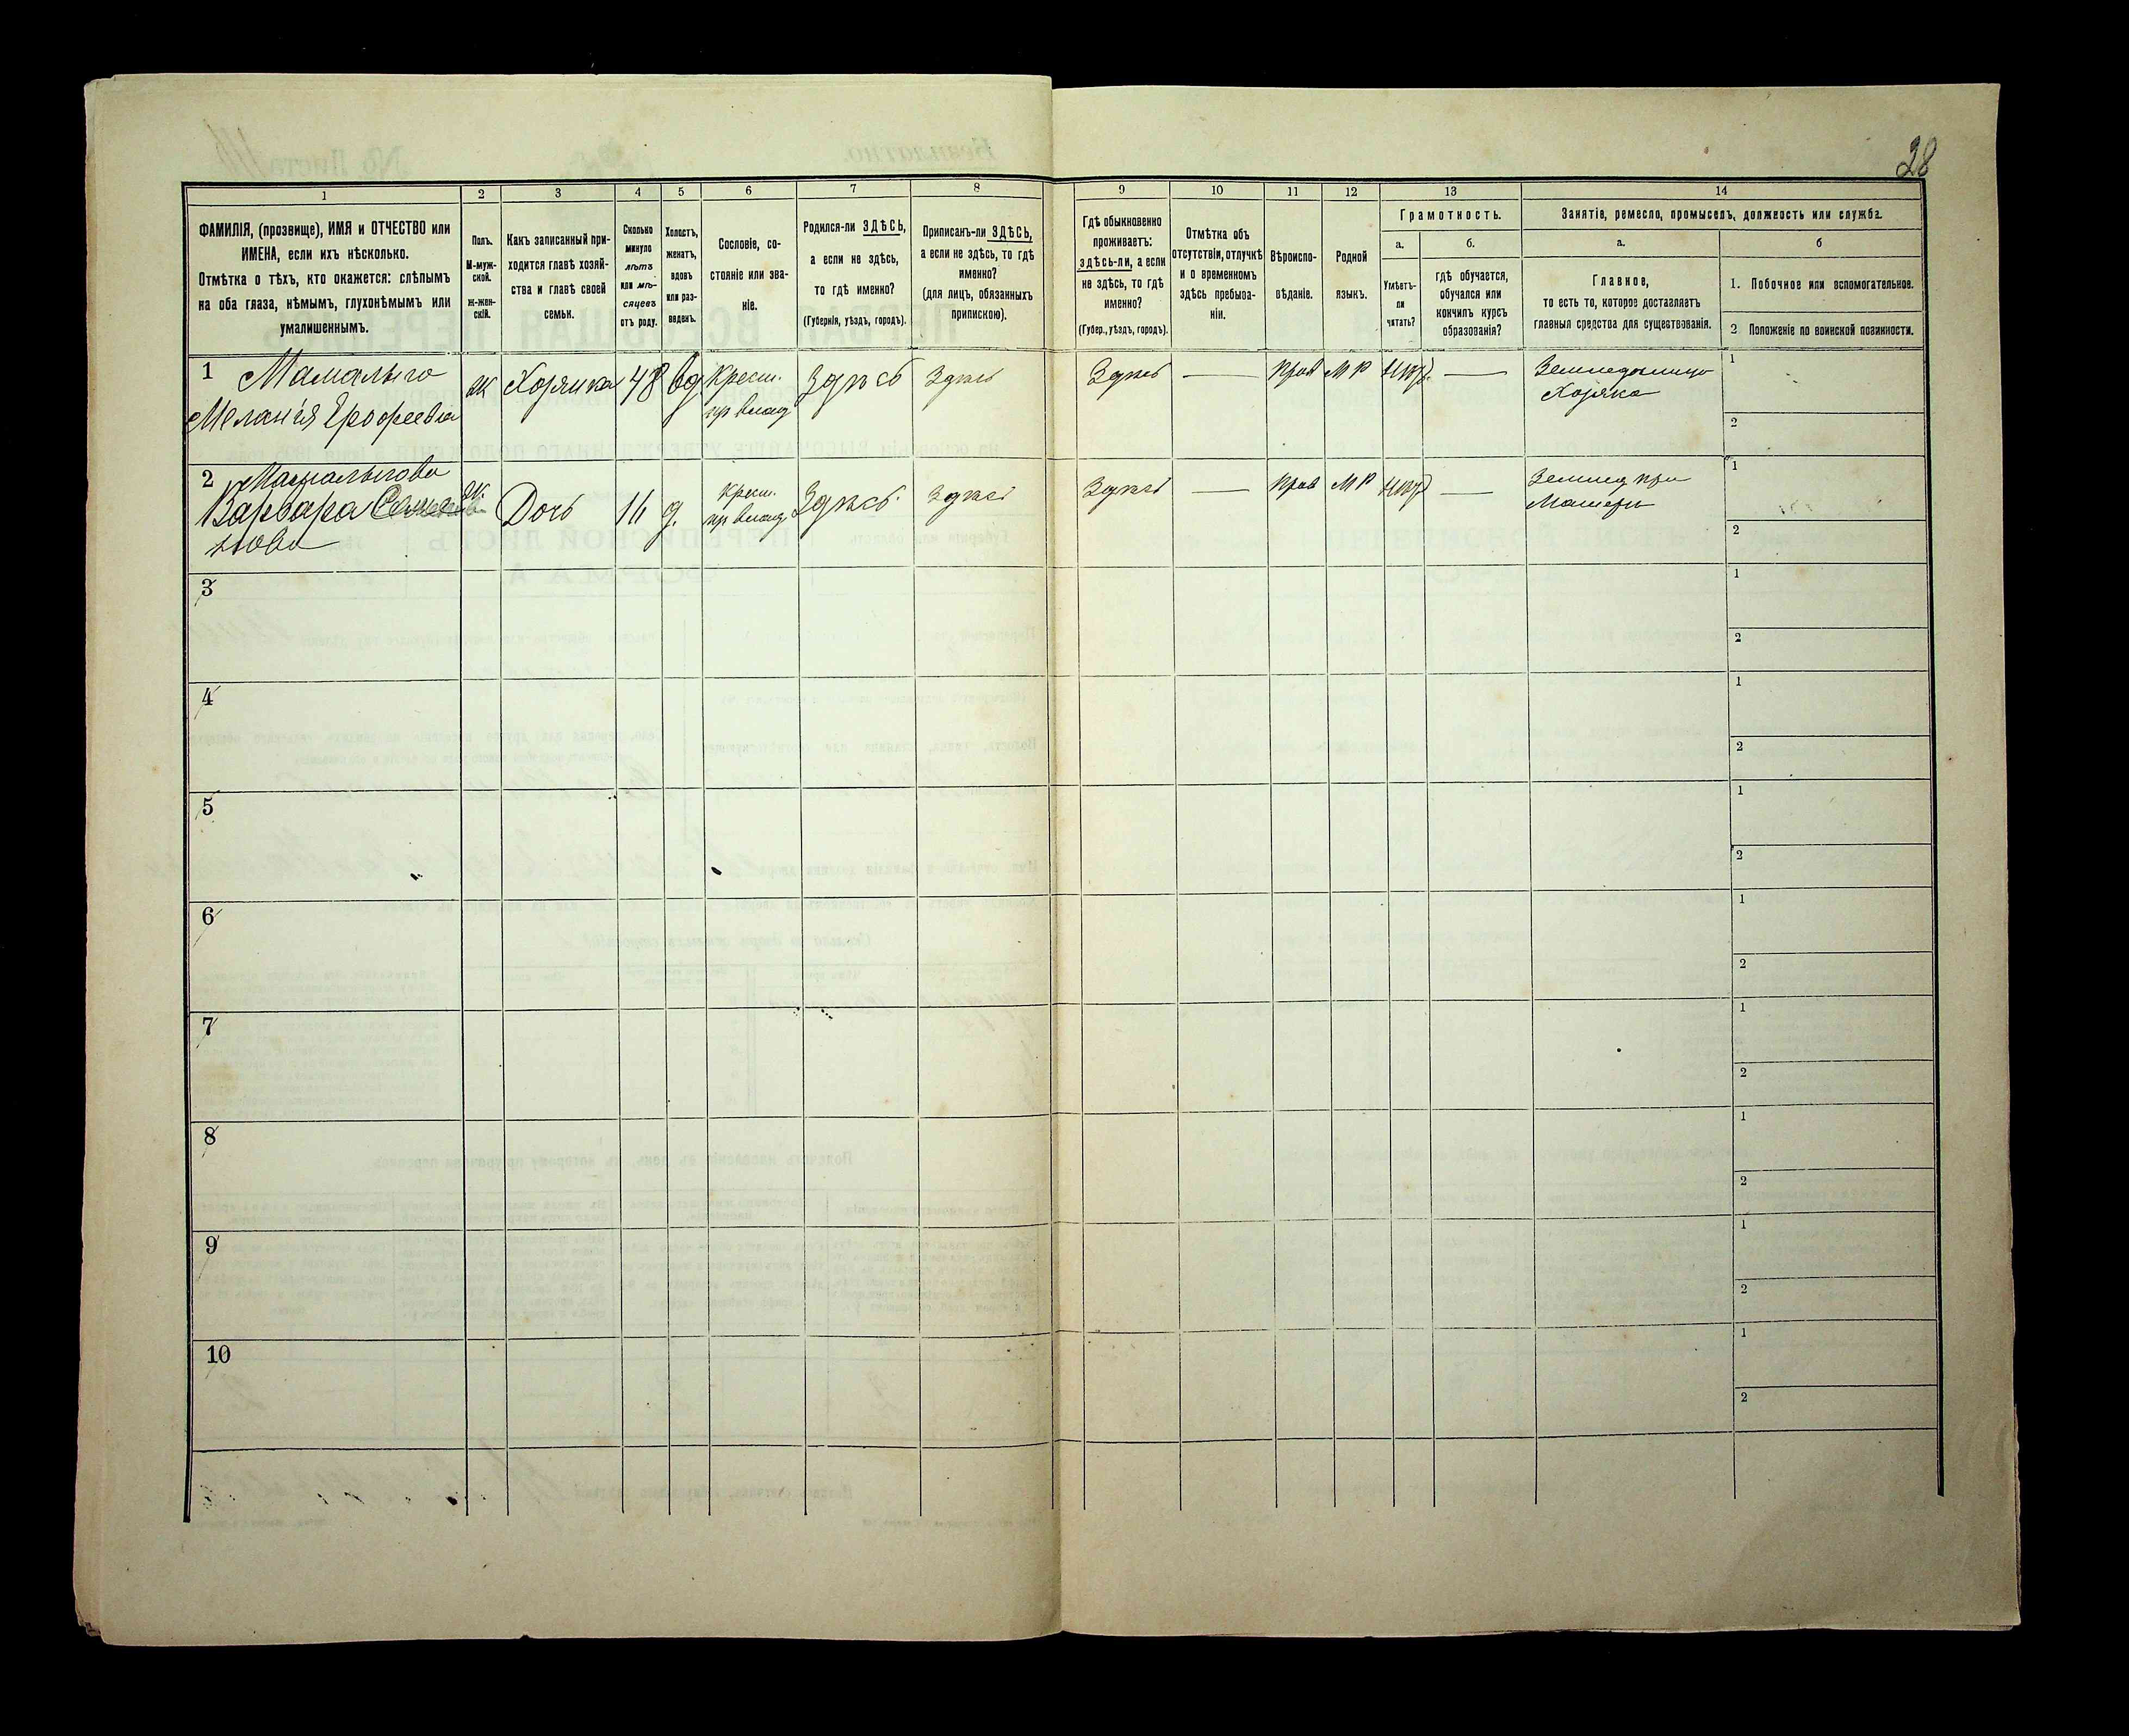 28
1 2 3 4 5 6 7 8 9 10 11 12 13 14
ФАМИЛІЯ, (прозвище), ИМЯ и ОТЧЕСТВО или
ИМЕНА, если ихъ нѣсколько.
Отмѣтка о тѣхъ, кто окажется: слѣпымъ
на оба глаза, нѣмымъ, глухонѣмымъ или
умалишеннымъ.
Полъ.
М-муж-
ской.
Ж-жен-
скій.
Какъ записанный при-
ходится главѣ хозяй-
ства и главѣ своей
семьи.
Сколько
минуло
лѣтъ
или мѣ-
сяцевъ
отъ роду.
Холостъ,
женатъ,
вдовъ
или раз-
веденъ.
Сословіе, со-
стояніе или зва-
ніе.
Родился-ли ЗДѢСЬ,
а если не здѣсь,
то гдѣ именно?
(Губернія, уѣздъ, городъ).
Приписанъ-ли ЗДѢСЬ,
а если не здѣсь, то гдѣ
именно?
(для лицъ, обязанныхъ
припискою).
Гдѣ обыкновенно
проживаетъ:
здѣсь-ли, а если
не здѣсь, то гдѣ
именно?
(Губер., уѣздъ, городъ).
Отмѣтка объ
отсутствіи, отлучкѣ
и о временномъ
здѣсь пребыва-
ніи.
Вѣроиспо-
вѣданіе.
Родной
языкъ.
Грамотность.
а.
Умѣетъ-
ли
читать?
б.
гдѣ обучается,
обучался или
кончилъ курсъ
образованія?
Занятіе, ремесло, промыселъ, должность или служба.
а.
Главное,
то есть то, которое доставляетъ
главныя средства для существованія.
б
1. Побочное или вспомогательное.
2 Положеніе по воинской повинности.
1 Мамалыго
Меланія Ерофеевна
ж Хозяйка 48 вд
Крест.
пр влад
Здѣсь Здѣсь Здѣсь — Прав МР нгр —
Земледѣлица
Хозяйка
1
2
2 Мамалыгова
Варвара Семе
нова
ж. Дочь 16 д.
Крест.
пр влад
Здѣсь Здѣсь Здѣсь — Прав МР нгр —
Землед при
Матери
1
2
3
1
2
4
1
2
5
1
2
6
1
2
7
1
2
8
1
2
9
1
2
10
1
2